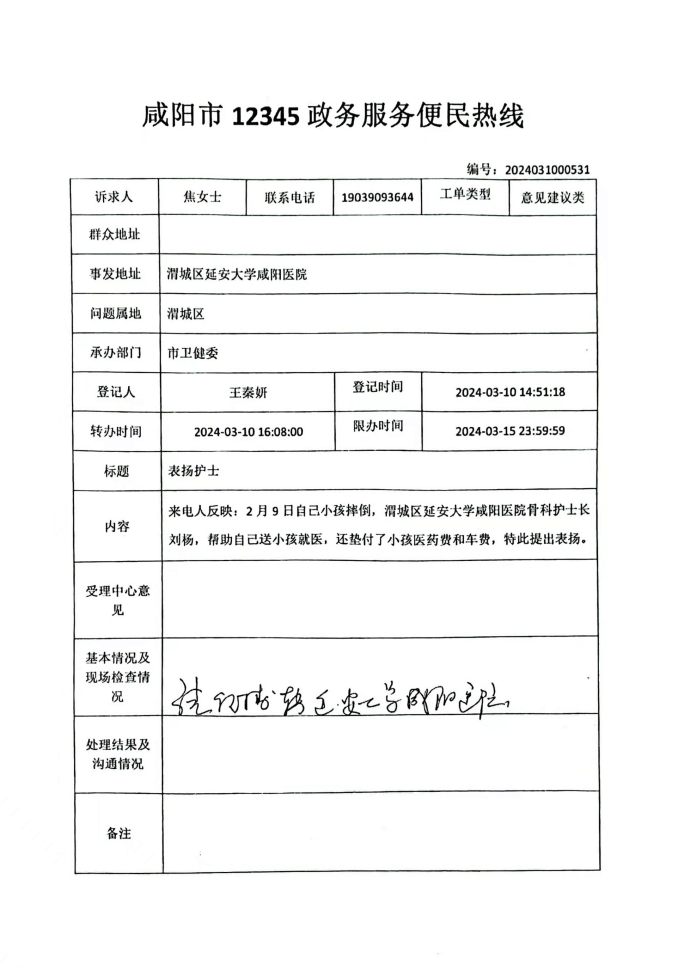 咸阳市 12345 政务服务便民热线
编号：2024031000531
诉求人 焦女士 联系电话 19039093644 工单类型 意见建议类
群众地址
事发地址 渭城区延安大学咸阳医院
问题属地 渭城区
承办部门 市卫健委
登记人 王秦妍 登记时间 2024-03-10 14:51:18
转办时间 2024-03-10 16:08:00 限办时间 2024-03-15 23:59:59
标题 表扬护士
来电人反映：2 月 9 日自己小孩摔倒，渭城区延安大学咸阳医院骨科护士长
内容
刘杨，帮助自己送小孩就医，还垫付了小孩医药费和车费，特此提出表扬。
受理中心意
见
基本情况及
现场检查情
况
转延安大学咸阳医院
处理结果及
沟通情况
备注